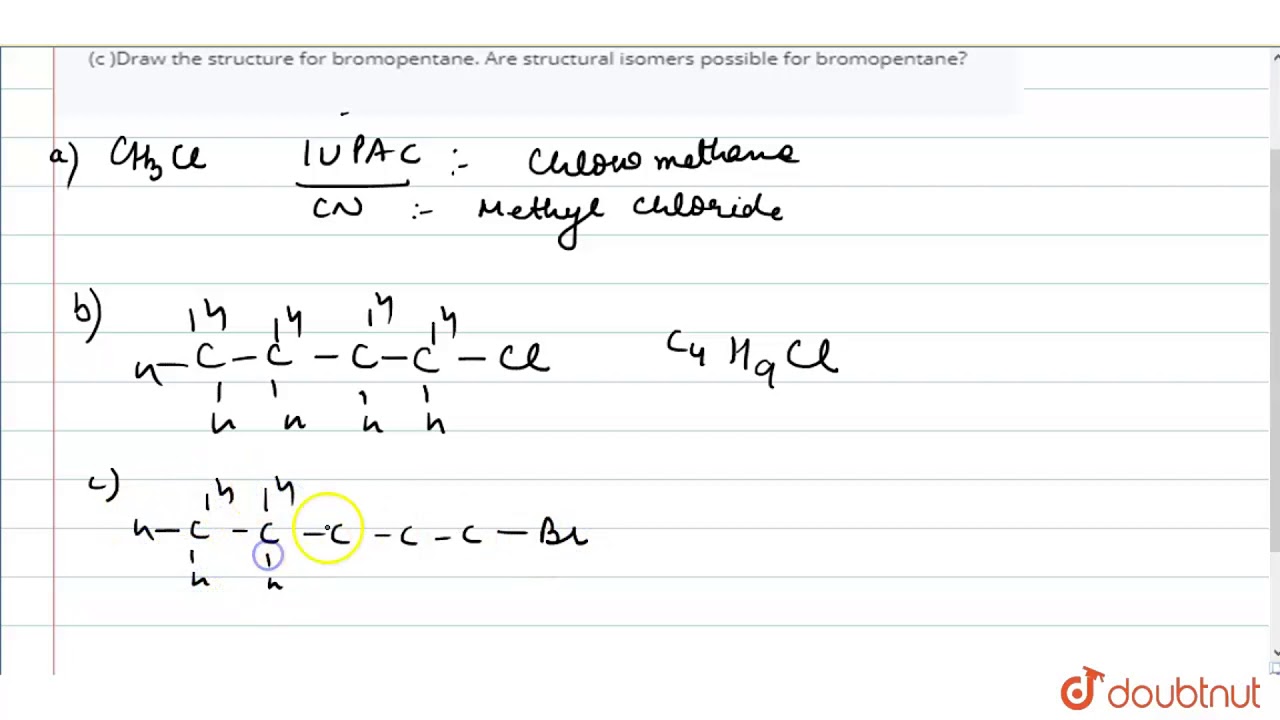 (c )Draw the structure for bromopentane. Are structural isomers possible for bromopentane?
a) CH3Cl IUPAC :- Chloro methane
CN :- Methyl Chloride
b)
H H H H
H – C – C – C – C – Cl C4H9Cl
H H H H
c)
H H
H – C – C – C – C – C – Br
H H
doubtnut